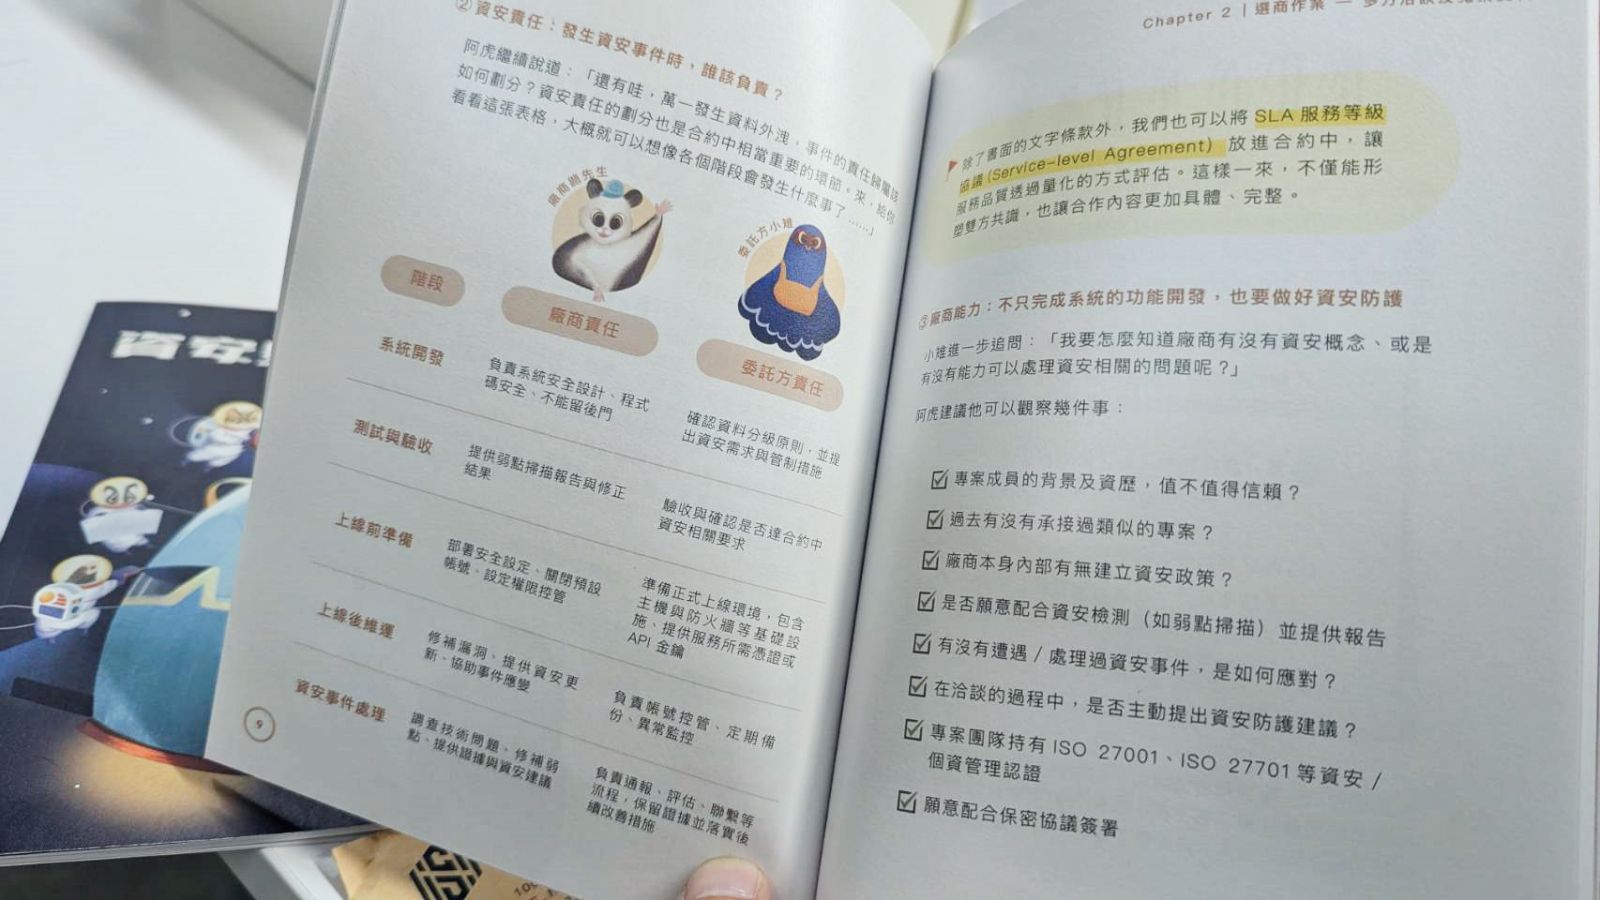 ②資安責任：發生資安事件時，誰該負責？
阿虎繼續說道：「還有哇，萬一發生資料外洩，事件的責任歸屬該
如何劃分？資安責任的劃分也是合約中相當重要的環節。來，給你
看看這張表格，大概就可以想像各個階段會發生什麼事了……」
先生
委託方小雉
階段
廠商責任
委託方責任
系統開發
負責系統安全設計、程式
碼安全、不能留後門
確認資料分級原則，並提
出資安需求與管制措施
測試與驗收
提供弱點掃描報告與修正
結果
驗收與確認是否達合約中
資安相關要求
上線前準備
部署安全設定、關閉預設
帳號、設定權限控管
準備正式上線環境，包含
主機與防火牆等基礎設
施、提供服務所需憑證或
API 金鑰
上線後維運
修補漏洞、提供資安更
新、協助事件應變
負責帳號控管、定期備
份、異常監控
資安事件處理
調查技術問題、修補弱
點、提供證據與資安建議
負責通報、評估、聯繫等
流程，保留證據並落實後
續改善措施
9
Chapter 2 | 選商作業 —
除了書面的文字條款外，我們也可以將 SLA 服務等級
協議 (Service-level Agreement) 放進合約中，讓
服務品質透過量化的方式評估。這樣一來，不僅能形
塑雙方共識，也讓合作內容更加具體、完整。
③廠商能力：不只完成系統的功能開發，也要做好資安防護
小雉進一步追問：「我要怎麼知道廠商有沒有資安概念、或是
有沒有能力可以處理資安相關的問題呢？」
阿虎建議他可以觀察幾件事：
專案成員的背景及資歷，值不值得信賴？
過去有沒有承接過類似的專案？
廠商本身內部有無建立資安政策？
是否願意配合資安檢測（如弱點掃描）並提供報告
有沒有遭遇 / 處理過資安事件，是如何應對？
在洽談的過程中，是否主動提出資安防護建議？
專案團隊持有 ISO 27001、ISO 27701 等資安 /
個資管理認證
願意配合保密協議簽署
資安